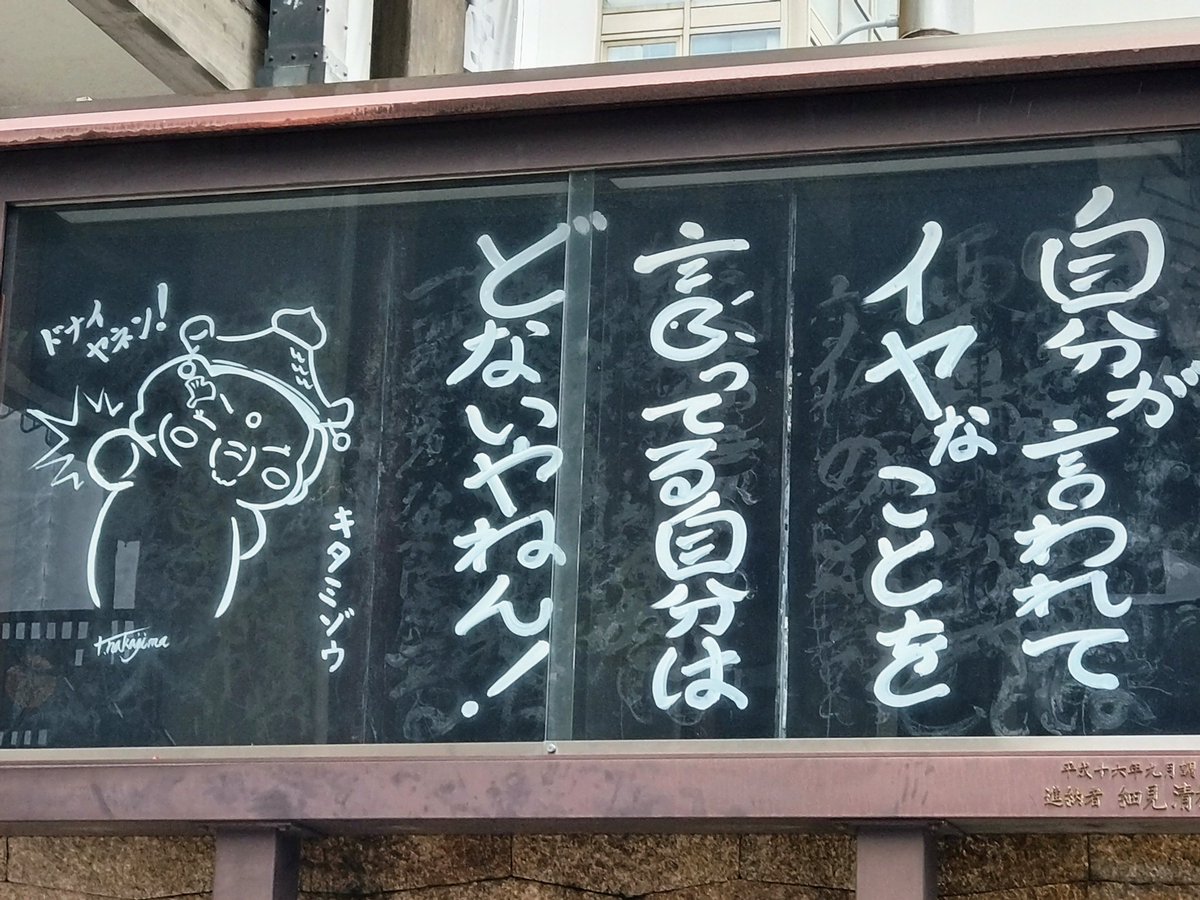 自分が言われて
イヤなことを
言ってる自分は
どないやねん!
ドナイ
ヤネン!
キタミゾウ
t.nakajima
平成十六年九月
進納者 細見清